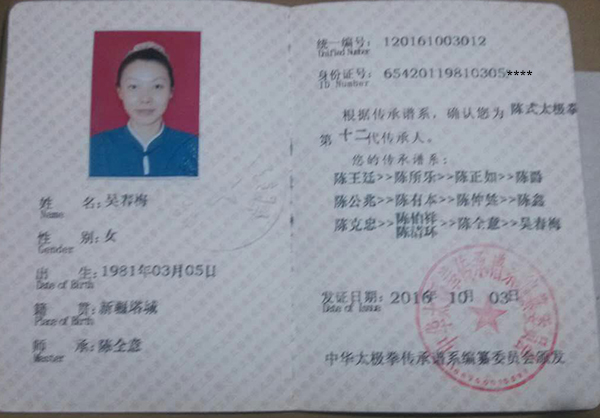 姓 名：吴春梅
Name
性 别：女
Gender
出 生：1981年03月05日
Date of Birth
籍 贯：新疆塔城
Place of Birth
师 承：陈全意
Master
统一编号：120161003012
Unified Number
身份证号：65420119810305****
ID Number
根据传承谱系，确认您为 陈式太极拳
第 十二代传承人。
您的传承谱系：
陈王廷>>陈所乐>>陈正如>>陈爵
陈公兆>>陈有本>>陈仲甡>>陈鑫
陈克忠>>陈伯祥 陈洁环>>陈全意>>吴春梅
发证日期：2016年 10月 03日
Date of Issue
中华太极拳传承谱系编纂委员会颁发